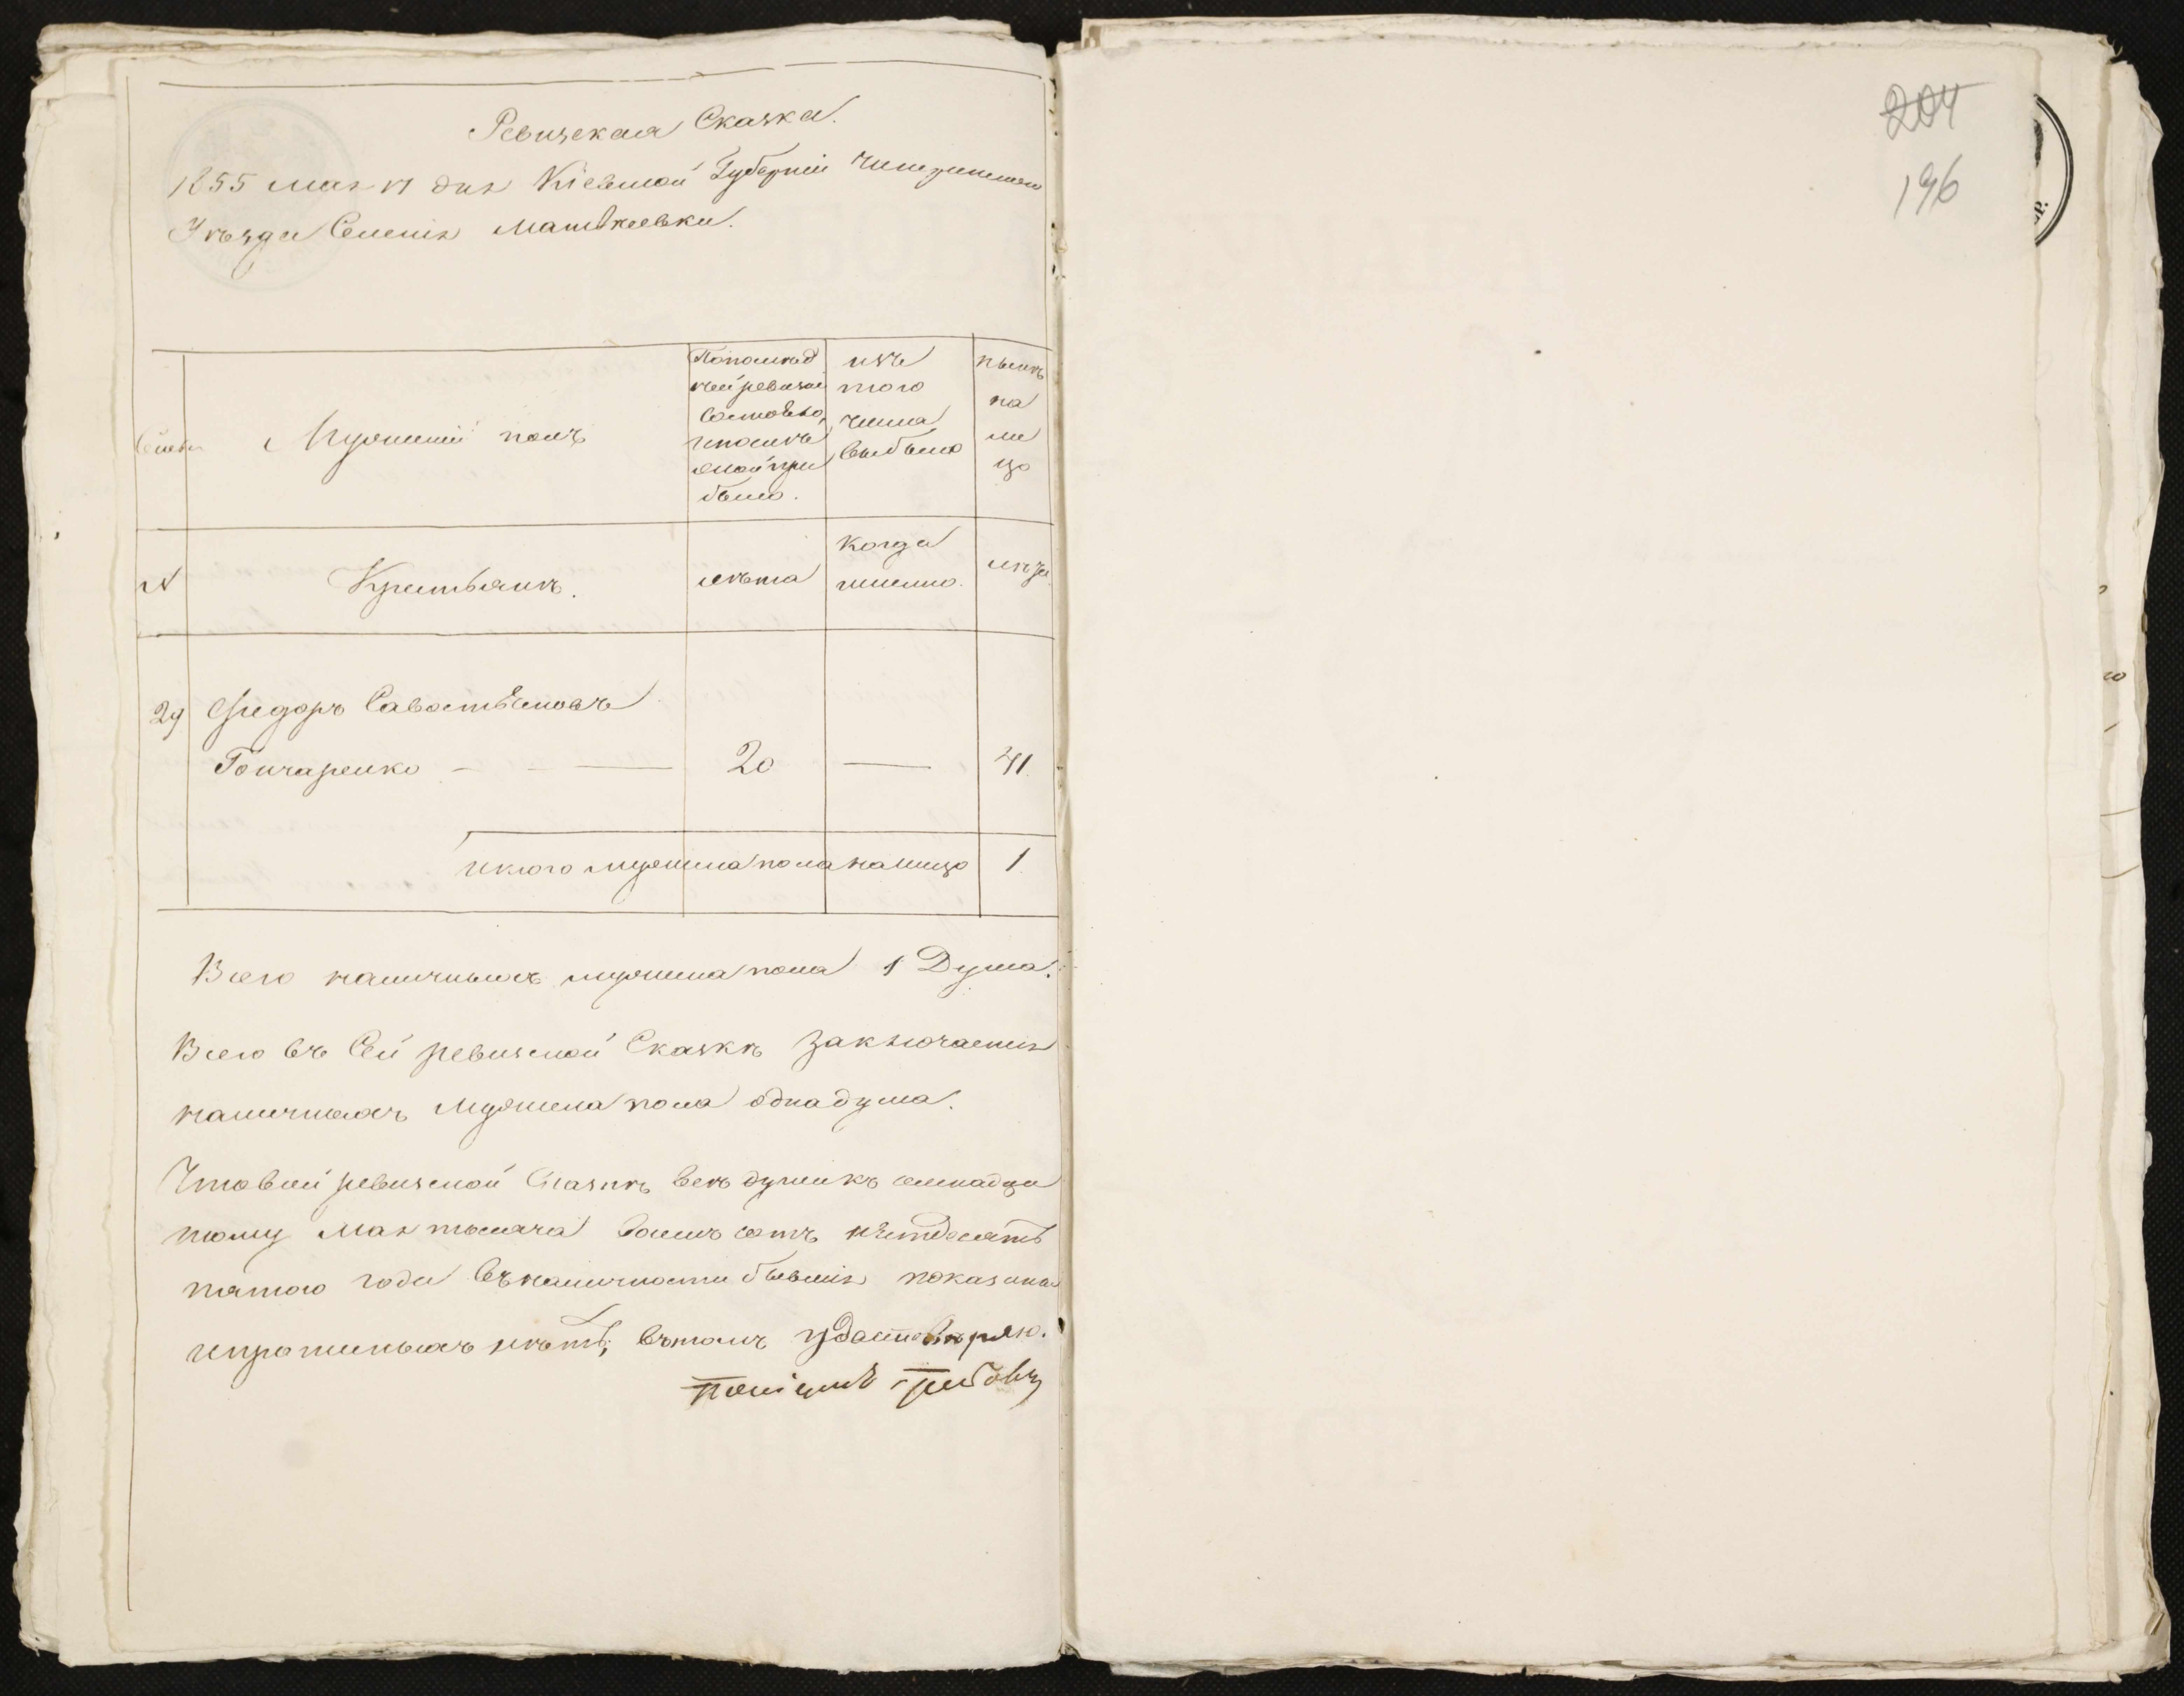 Ревизская Сказка.
1855 мая 17 дня Кіевской Губерніи Чигиринскаго
Уѣзда Селенія Матвѣевки.
Семьи
Мужескій полъ
По послѣд
ней ревизіи
Состояло,
и послѣ
оной при
было.
изъ
того
числа
выбыло
нынѣ
на
ли
цо
N
Крестьянъ.
лѣта
Когда
именно.
лѣта
29
Фиодоръ Савостьяновъ
Гончаренко — — — 20 — 41.
итого мужеска пола на лицо 1
Всего наличныхъ мужеска пола 1 Душа.
Всего въ Сей ревизской Сказкѣ Заключается
наличныхъ Мужеска пола одна душа.
Что в сей ревизской Сказкѣ всѣ души къ семнадца
тому Мая тысяча восемь сотъ пятдесятъ
пятого года въ наличности бывшія показаны
и прописныхъ нѣтъ, въ томъ удостовѣряю.
204
196